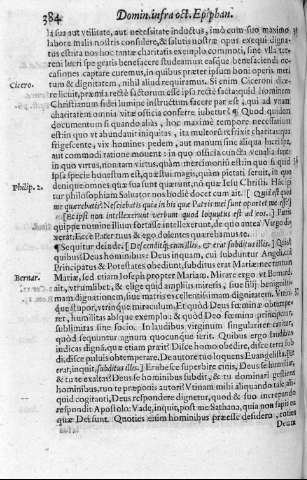 384 Domin. infra oct. Epiphan.
sua aut vtilitate, aut necessitate inductus, imò cum suo maximo
labore malis nostris consulere, & salutis nostræ opus exequi digna-
tus est ira nos hoc tantæ charitatis exemplo
reni lucri spe gratis benefacere studeamus easque benefaciendi oc-
casiones captare curemus, in quibus præter ipsum boni operis meri-
Cicero. tum & dignitatem, nihil aliud requiramus. Si enim Cicero dicere
Christianum fidei lumine instructum facere par est, qui ad vnam
charitatem omnia vitæ officia conferre iubetur? ¶ Quod quidem
documentum si quando aliàs, hoc maximè tempore necessarium
est in quo vt abundauit iniquitas, ita multorum refrixit charitas: quæ
frigescente, vix hominem pedem, aut manum sine aliqua lucri spe,
aut commodi ratione mouent: in quo officia cuncta venalia sunt:
in quo virtus, non tam virtus, quàm merdimonium est: in quo si quid
ipsa specie honestum est, quæstui magis, quàm pietati seruit, in quo
Philip. 2. denique omnes quæ sua sunt quærunt, non quæ Iesu Christi. Hac igi-
tur philosophiam Saluator nos hodie docet cum ait. [Quid est quod
me quærebatis? Nesciebatis quia in his quæ Patris mei sunt oportet me esse?
[Et ipsi non intellexerunt verbum quod loquutus est ad eos.] Pauci
quippe nomine illium fortasse intellexerunt, de quo antea Virgo di-
xerat: Ecce Pater tuus & ego dolentes quærebamus te.
¶ Sequitur deinde. [Descendit que cum illis, & erat subditus illis.] Quis?
quibus? Deus hominibus: Deus inquam, cui subduntur Angeli, cui
Principatus & Potestates obediunt, subditus erat Mariæ: nec tantùm
Bernar. Mariæ, sed etiam Ioseph propter Mariam. Mirare ergo vt Bernard.
ait, vtrumlibet, & elige quid amplius mireris, siue filij benignissi-
mam dignationem, siue matris excellentissimam dignitatem. Vtrin-
que stupor, vtrinque miraculum. Et quòd Deus fœminæ obtempe-
ret, humilitas absque exemplo: & quòd Deo fœmina principetur,
sublimitas sine socio. In laudibus virginum singulariter canitur,
quòd sequuntur agnum quocunque ierit. Quibus ergo laudibus
indicas dignã, quæ etiam præit? Disce homo obedire, disce terra sub-
di, disce puluis obtemperare. De autore tuo loquens Euangelista, Et
erat, inquit, subditus illis.] Erubesce superbe cinis, Deus se humiliat,
& tu te exaltas? Deus se hominibus subdit, & tu dominari gestiens
hominibus, tuo te præponis autori? Vtinam mihi aliquando tale ali-
quid cogitanti, Deus respondere dignetur, quod & suo increpando
respondit Apostolo: Vade, inquit, post me Sathana, quia non sapis ea
quæ Dei sunt. Quoties enim hominibus præesse desidero, toties
Deum